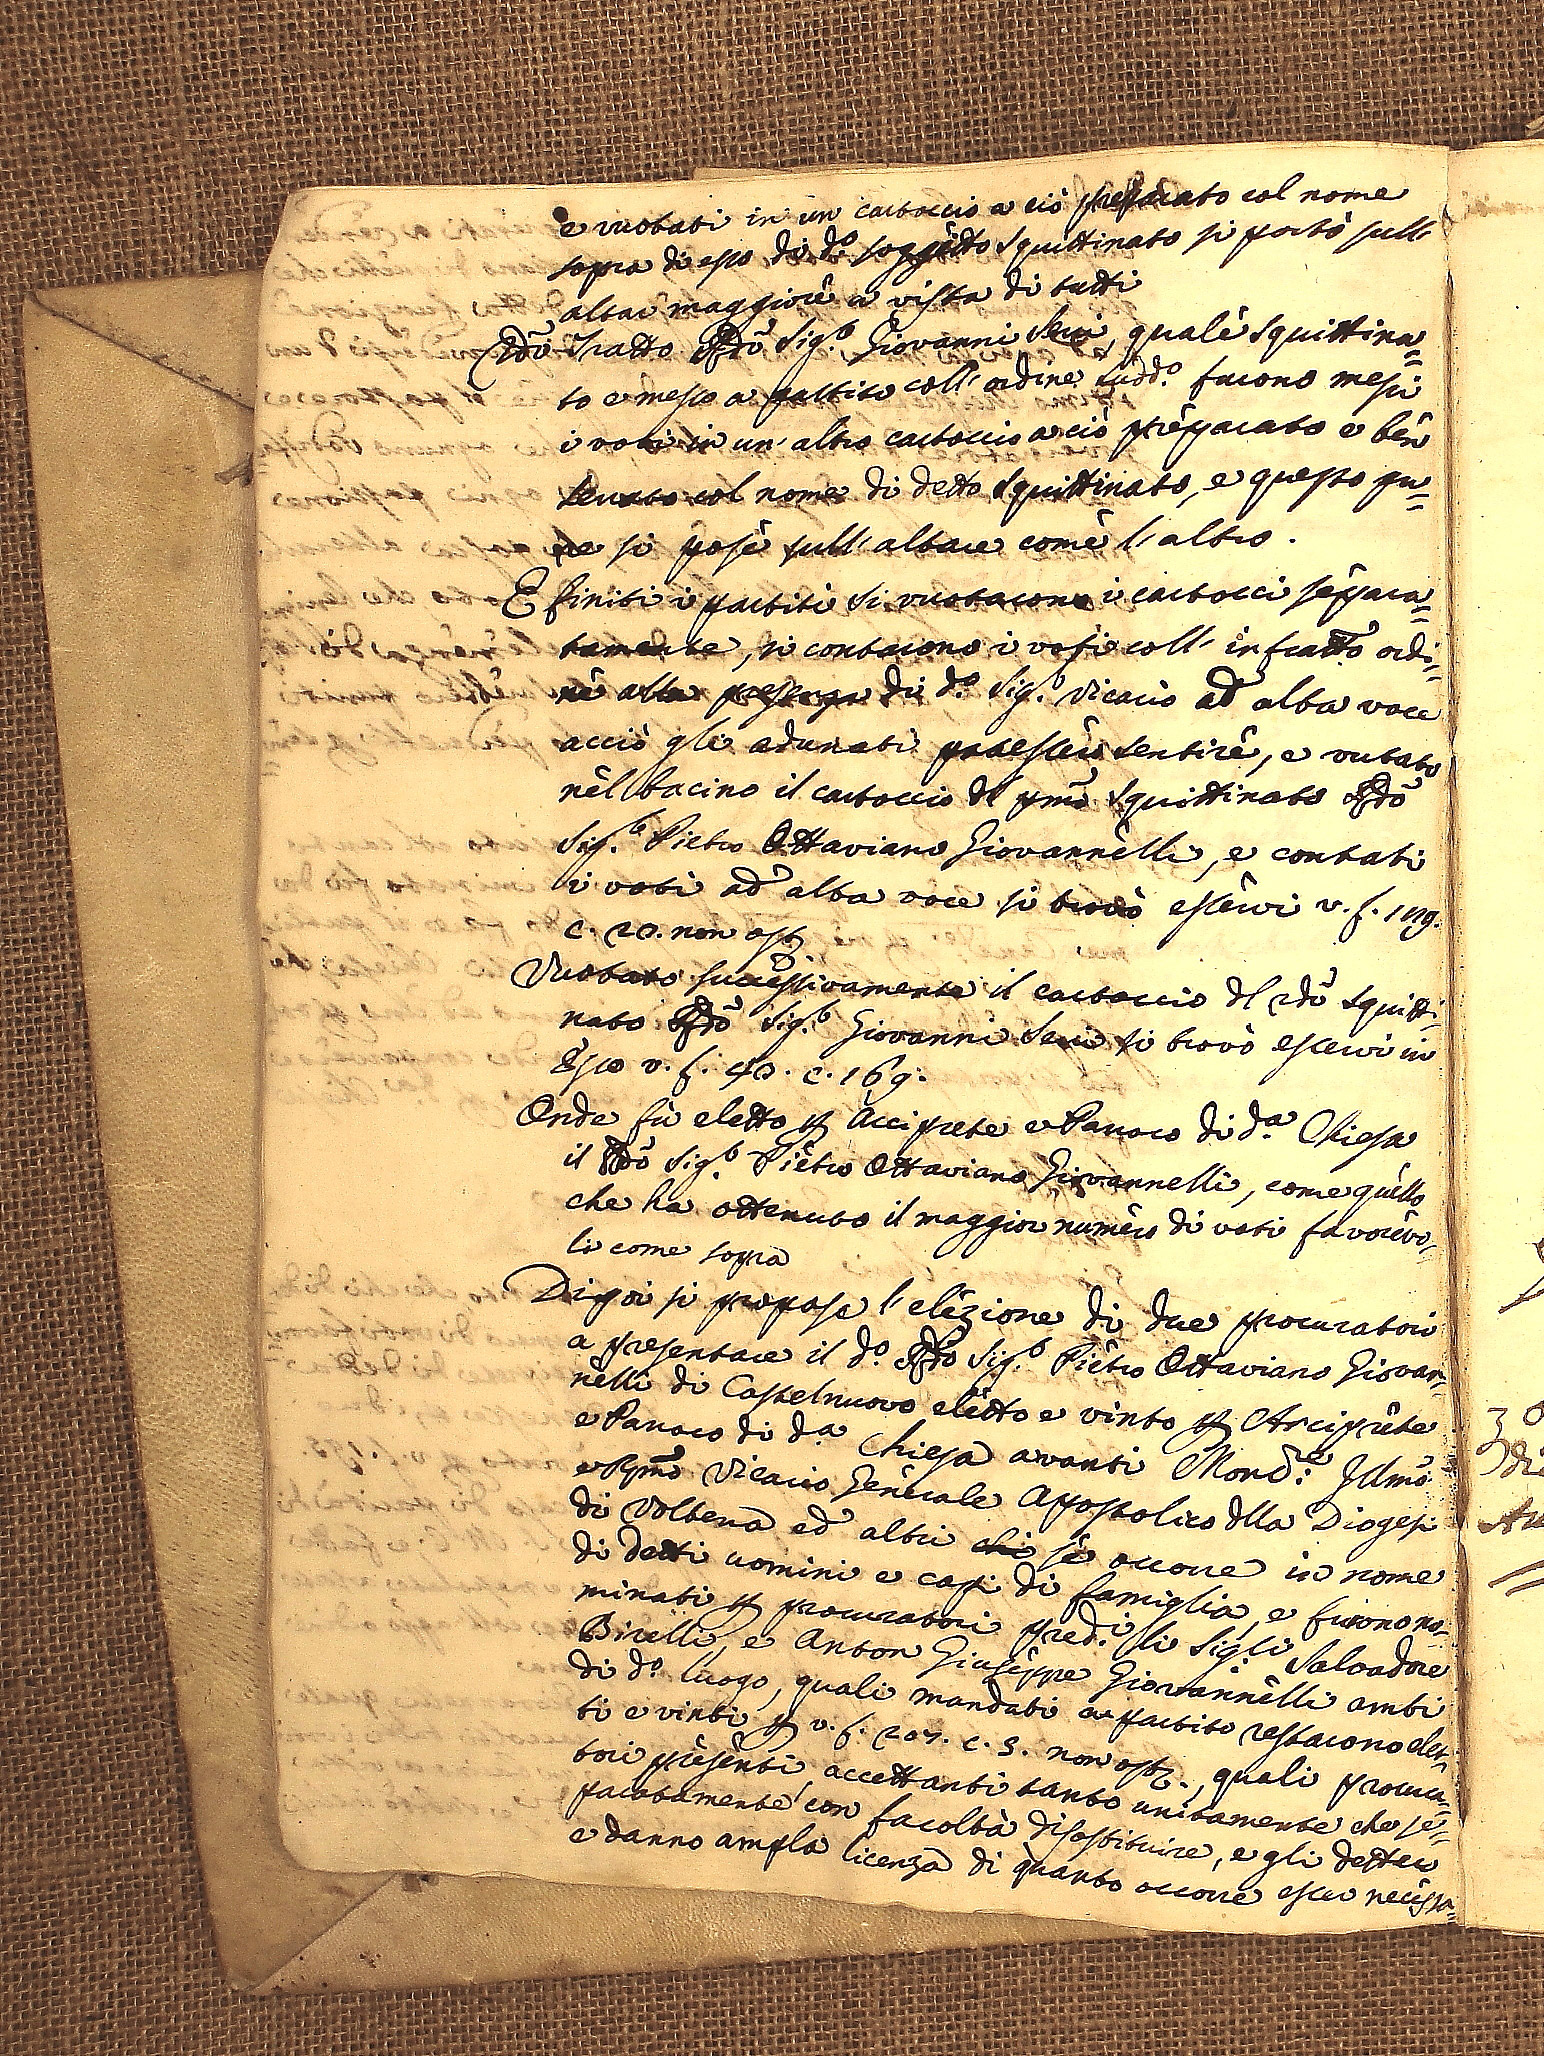 e vuotati in un cartoccio a ciò preparato col nome
sopra di esso di d.º soggetto squittinato si portò sull'
altar maggiore a vista di tutti
2dō Tratto Rdō Sig.r Giovanni Seri, quale squittina=
to e messo a partito coll'ordine sudd.º furono messi
i voti in un'altro cartoccio a ciò preparato e ben
serrato col nome di detto squittinato, e questo pu=
re si pose sull'altare come l'altro.
E finiti i partiti si vuotarono i cartocci separa=
tamente, si contarono i voti coll'infratto ordi=
ne alla presenza di d.º Sig.r Vicario ad alta voce
acciò gli adunati potessero sentire, e vutato
nel bacino il cartoccio dl pmō squittinato Rdō
Sig.r Pietro Ottaviano Giovannelli, e contati
i voti ad alta voce si trovò esservi v. f.
c. 20. non ost
Vuotato successivamente il cartoccio dl 2dō squitti=
nato Rdō Sig.r Giovanni Seri si trovò esservi in
Esso v. f. 40. c. 169.
Onde fù eletto p Arciprete e Parroco di d.a Chiesa
il Rdō Sig.r Pietro Ottaviano Giovannelli, come quello
che ha ottenuto il maggior numero di voti favorevo=
li come sopra
Dipoi si propose l'elezione di due procuratori
a presentare il d.º Rdō Sig.r Pietro Ottaviano Giovan=
nelli di Castelnuovo eletto e vinto p Arciprete
e Parroco di d.a Chiesa avanti Mond.re Illmō
e Rmō Vicario Generale Apostolico dlla Diogesi
di Volterra ed altri chi se occorre in nome
di detti uomini e capi di famiglia, e furono no=
minati p procuratori pred.i li Sig.li Salvadore
Birelli, e Anton Giuseppe Giovannelli ambi
di d.º luogo, quali mandati a partito restarono elet=
ti e vinti p v. f. c. 3. non ost., quali procura=
tori presenti, accettanti tanto unitamente che se=
paratamente con facoltà di sostituire, e gli dettero
e danno ampla licenza di quanto occorre esser necessa=
3º